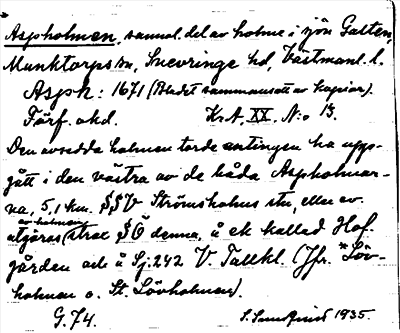 Aspholmen, samml. del av holme i sjön Galten,
Munktorps sn, Snevringe hd, Västmanl. l.
Asph: 1671 (Bladet sammansatt av kopior).
Färf. okd. K.A. XX. N:o 13.
Den avsedda holmen torde antingen ha upp-
gått i den västra av de båda Aspholmar-
na, 5,1 km. S,SV Strömsholms stn, eller ev.
utgöras (holmen) strax S,SÖ denna, å ek. kallad Hof-
gården och å Sj. 242 V. Tallkl. (Jfr. *Löv-
holmen o. St. Lövholmen).
G. 74. 1935.